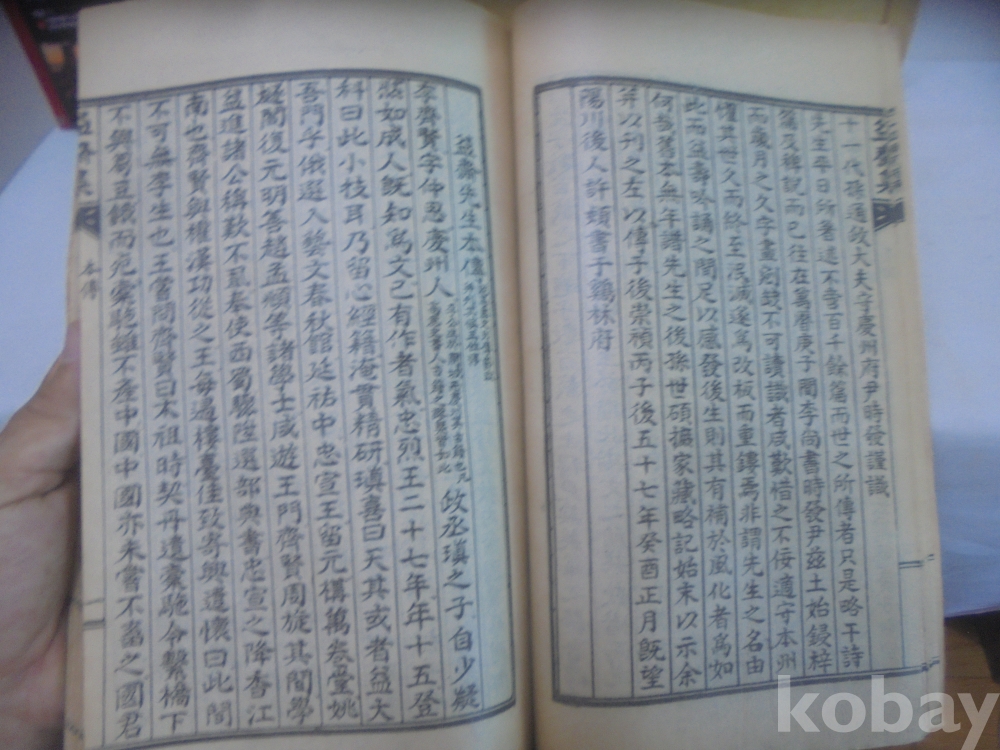 益齋集
十一代孫通政大夫守慶州府尹時發謹識
先生平日所著述不啻百千餘篇而世之所傳者只是略干詩
篇及稗說而已往在萬曆庚子間李尙書時發尹玆土始鋟梓
而歲月之久字畫刓缺不可讀識者咸歎惜之不佞適守本州
懼其世久而終至泯滅遂爲改板而重鏤焉非謂先生之名由
此而益壽吟誦之間足以感發後生則其有補於風化者爲如
何哉舊本無年譜先生之後孫世碩據家藏略記始末以示余
幷以刊之左以傳于後崇禎丙子後五十七年癸酉正月旣望
陽川後人許熲書于鷄林府
益齋先生本傳
李齊賢字仲思慶州人政丞瑱之子自少凝
然如成人旣知爲文已有作者氣忠烈王二十七年年十五登
科曰此小技耳乃留心經籍淹貫精硏瑱喜曰天其或者益大
吾門乎俄選入藝文春秋館延祐中忠宣王留元構萬卷堂姚
燧閻復元明善趙孟頫等諸學士咸遊王門齊賢周旋其間學
益進諸公稱歎不置奉使西蜀驟陞選部典書忠宣之降香江
南也齊賢與權漢功從之王每過樓臺佳致寄興遣懷曰此間
不可無李生也王嘗問齊賢曰太祖時契丹遺橐馳令繫橋下
不與芻豆餓而死橐馳雖不產中國中國亦未嘗不畜之國君
益齋集
本傳
kobay